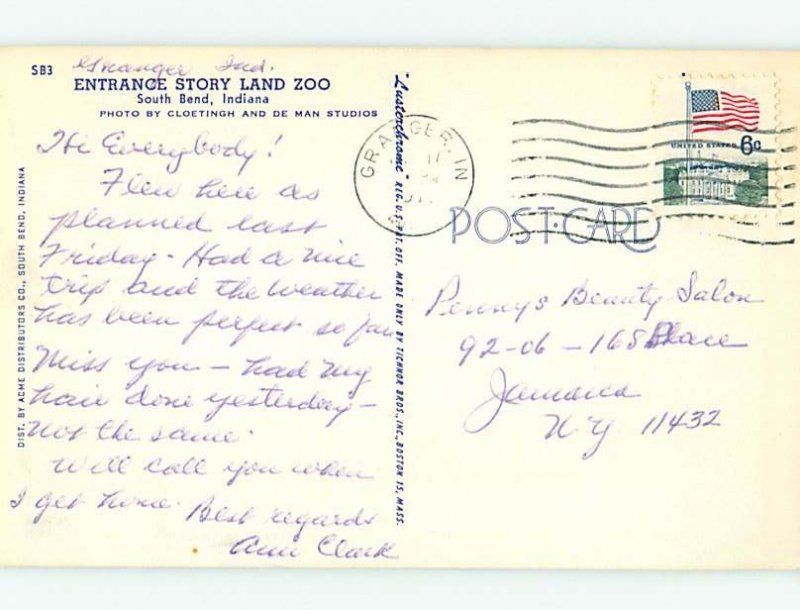 SB3
Granger Ind.
ENTRANCE STORY LAND ZOO
South Bend, Indiana
PHOTO BY CLOETINGH AND DE MAN STUDIOS
Hi Everybody!
Flew here as
planned last
Friday - Had a nice
trip and the weather
has been perfect so far
Miss you - had my
hair done yesterday -
not the same.
Will call you when
I get home.
Best regards
Ann Clark
DIST. BY ACME DISTRIBUTORS CO., SOUTH BEND, INDIANA
"Lusterchrome" REG. U.S. PAT. OFF. MADE ONLY BY TICHNOR BROS., INC., BOSTON 15, MASS.
GRANGER, IN
11
UNITED STATES 6c
POST-CARD
Pennys Beauty Salon
92-06 - 168 Place
Jamaica
N.Y. 11432